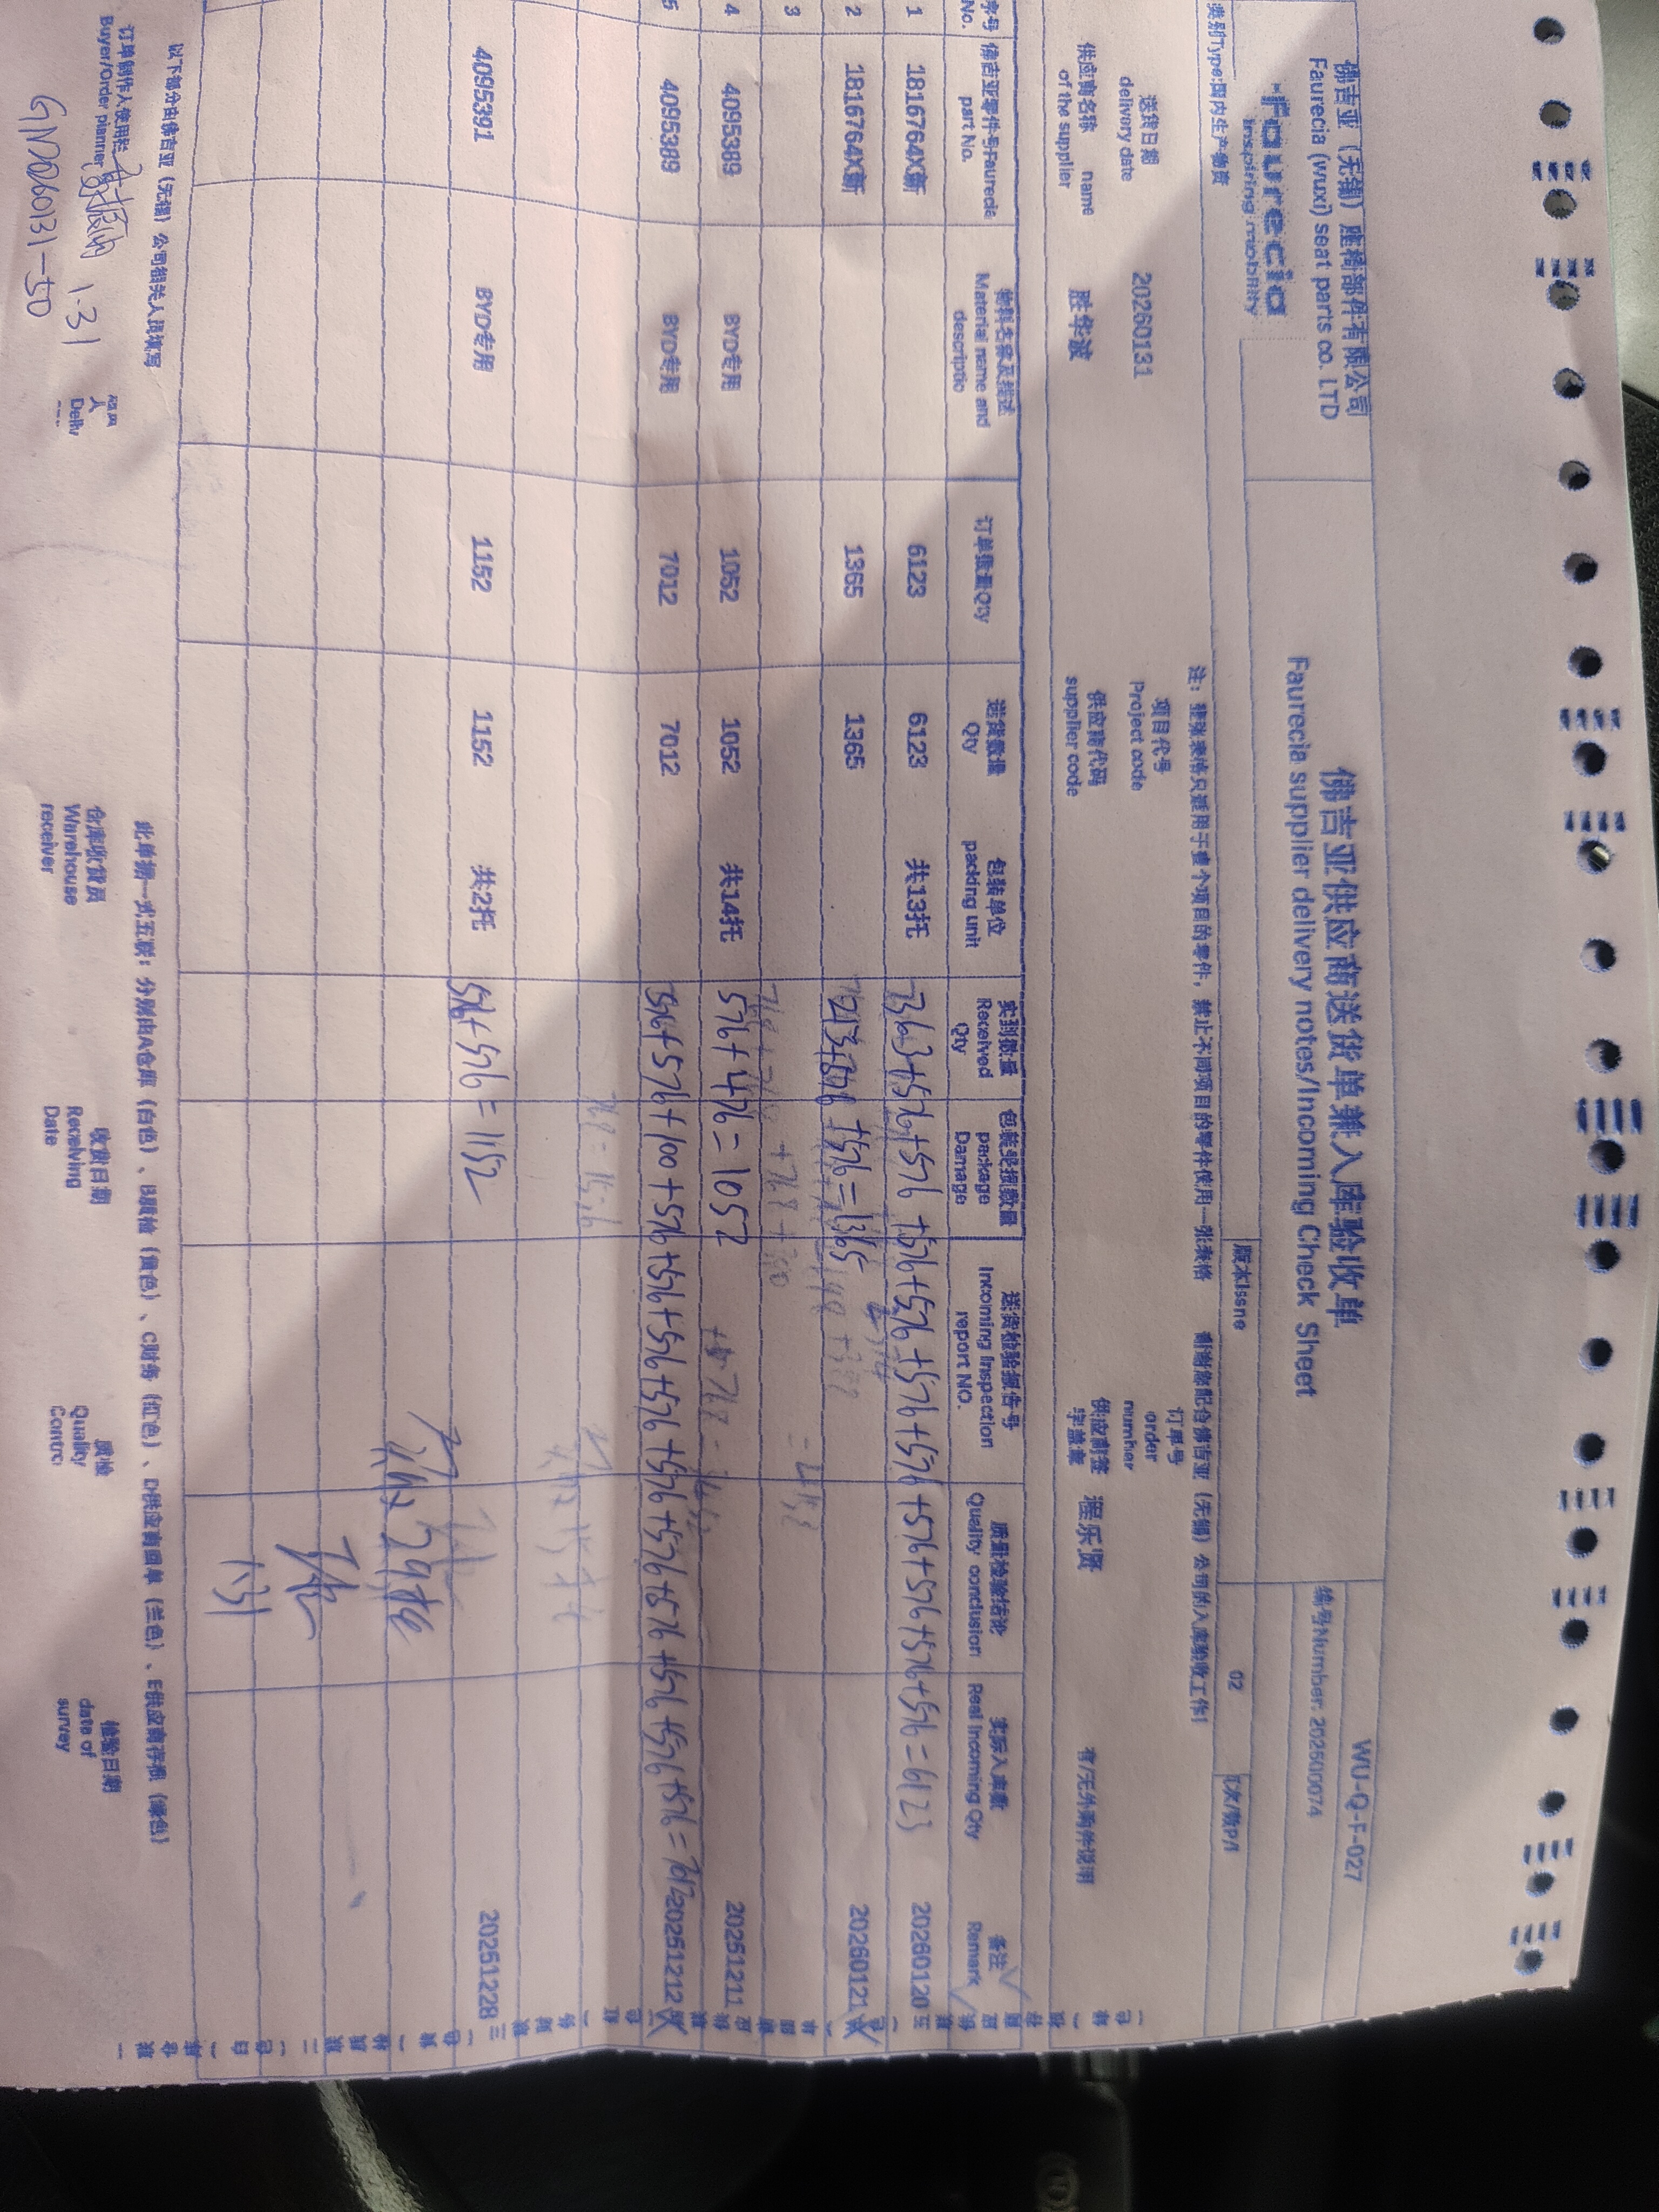 佛吉亚（无锡）座椅部件有限公司
Faurecia (wuxi) seat parts co. LTD
faurecia
inspiring mobility
佛吉亚供应商送货单兼入库验收单
Faurecia supplier delivery notes/Incoming Check Sheet
WU-Q-F-027
编号Number: 202600074
类别Type:国内生产物资
版本Issne
02
页次/数P/1
注：壹张表格只适用于壹个项目的零件，禁止不同项目的零件使用一张表格 谢谢您配合佛吉亚（无锡）公司的入库验收工作!
送货日期 delivery date
20260131
项目代号 Project code
订单号 order number
供应商名称 name of the supplier
胜华波
供应商代码 supplier code
供应商签字盖章
程乐贤
有/无外购件说明
序号 No. 佛吉亚零件号Faurecia part No. 物料名称及描述 Material name and descriptio 订单数量Qty 送货数量 Qty 包装单位 packing unit 实到数量 Received Qty 包装受损数量 package Damage 送货检验报告号 Incoming Inspection report NO. 质量检验结论 Quality conclusion 实际入库数 Real Incoming Qty 备注 Remark
1 1816764X新 6123 6123 共13托 +576+576+576+576+576+576+576+576=6123 20260120
2 1816764X新 1365 1365 +576=1365 20260121
3
4 4095389 BYD专用 1052 1052 共14托 576+476=1052 20251211
5 4095389 BYD专用 7012 7012 +576+100+576+576+576+576+576+576+576+576+576=7012 20251212
4095391 BYD专用 1152 1152 共2托 576+576=1152 20251228
29托
1.31
此单据一式五联：分别由A仓库（白色）、B质检（黄色）、C财务（红色）、D供应商回单（兰色）、E供应商存根（绿色）
以下部分由佛吉亚（无锡）公司相关人员填写
订单制作人使用栏 Buyer/Order planner
1.31
GN20260131-50
人 Deliv
仓库收货员 Warehouse receiver
收货日期 Receiving Date
质检 Quality Contro
检验日期 date of survey